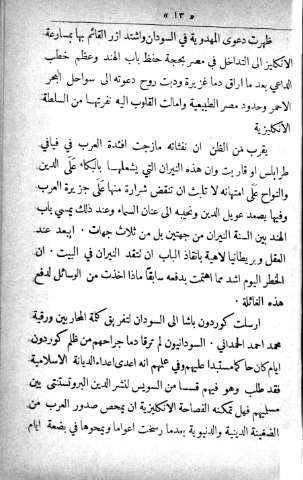 « ١٣ »
ظهرت دعوى المهدوية في السودان واشتد ازر القائم بها بمسارعة
الانكليز الى التداخل في مصر بحجة حفظ باب الهند وعظم خطب
الداعي بعد ما اراق دما غزيرة ودبت روح دعوته الى سواحل البحر
الاحمر وحدود مصر الطبيعية وامالت القلوب اليه نفرتها من السلطة
الانكليزية
يقرب من الظن ان نفثاته مازجت افئدة العرب في فيافي
طرابلس او قاربت وان هذه النيران التي يشعلها بالبكاء على الدين
والنواح على امتهانه لا تلبث ان تنقض شرارة منها على جزيرة العرب
وفيها يصعد عويل الدين ونحيبه الى عنان السماء وعند ذلك يمسي باب
الهند بين السنة النيران من جهتين بل من ثلاث جهات ٠ ايبعد عند
العقل وبريطانيا لاهية بانقاذ الباب ان تتقد النيران في البيت ٠ ان
الخطر اليوم اشد مما اهتمت بدفعه سابقاً ماذا اخذت من الوسائل لدفع
هذه الغائلة ٠
ارسلت كوردون باشا الى السودان لتفريق كلمة المحاربين ورقية
محمد احمد ٠ السودانيون لم ترقا دما جراحهم من ظلم كوردون
ايام كان حاكما مستبدا عليهم وفي علمهم انه اعدى اعداء الديانة الاسلامية
فقد طلب وهو فيهم قسسا من السويس لنشر الدين البروتستنتي بين
مسليهم فهل تمكنه الفصاحة الانكليزية ان يمحص صدور العرب من
الضغينة الدينية والدنيوية بعدما رسخت اعواما ويمحوها في بضعة ايام